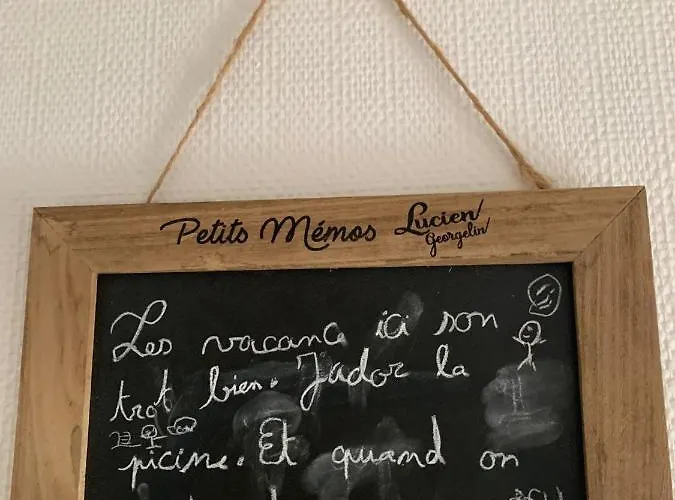 Petits Mémos Lucien Georgelin
Les vacanc ici son
trot bien. J'ador la
picine. Et quand on